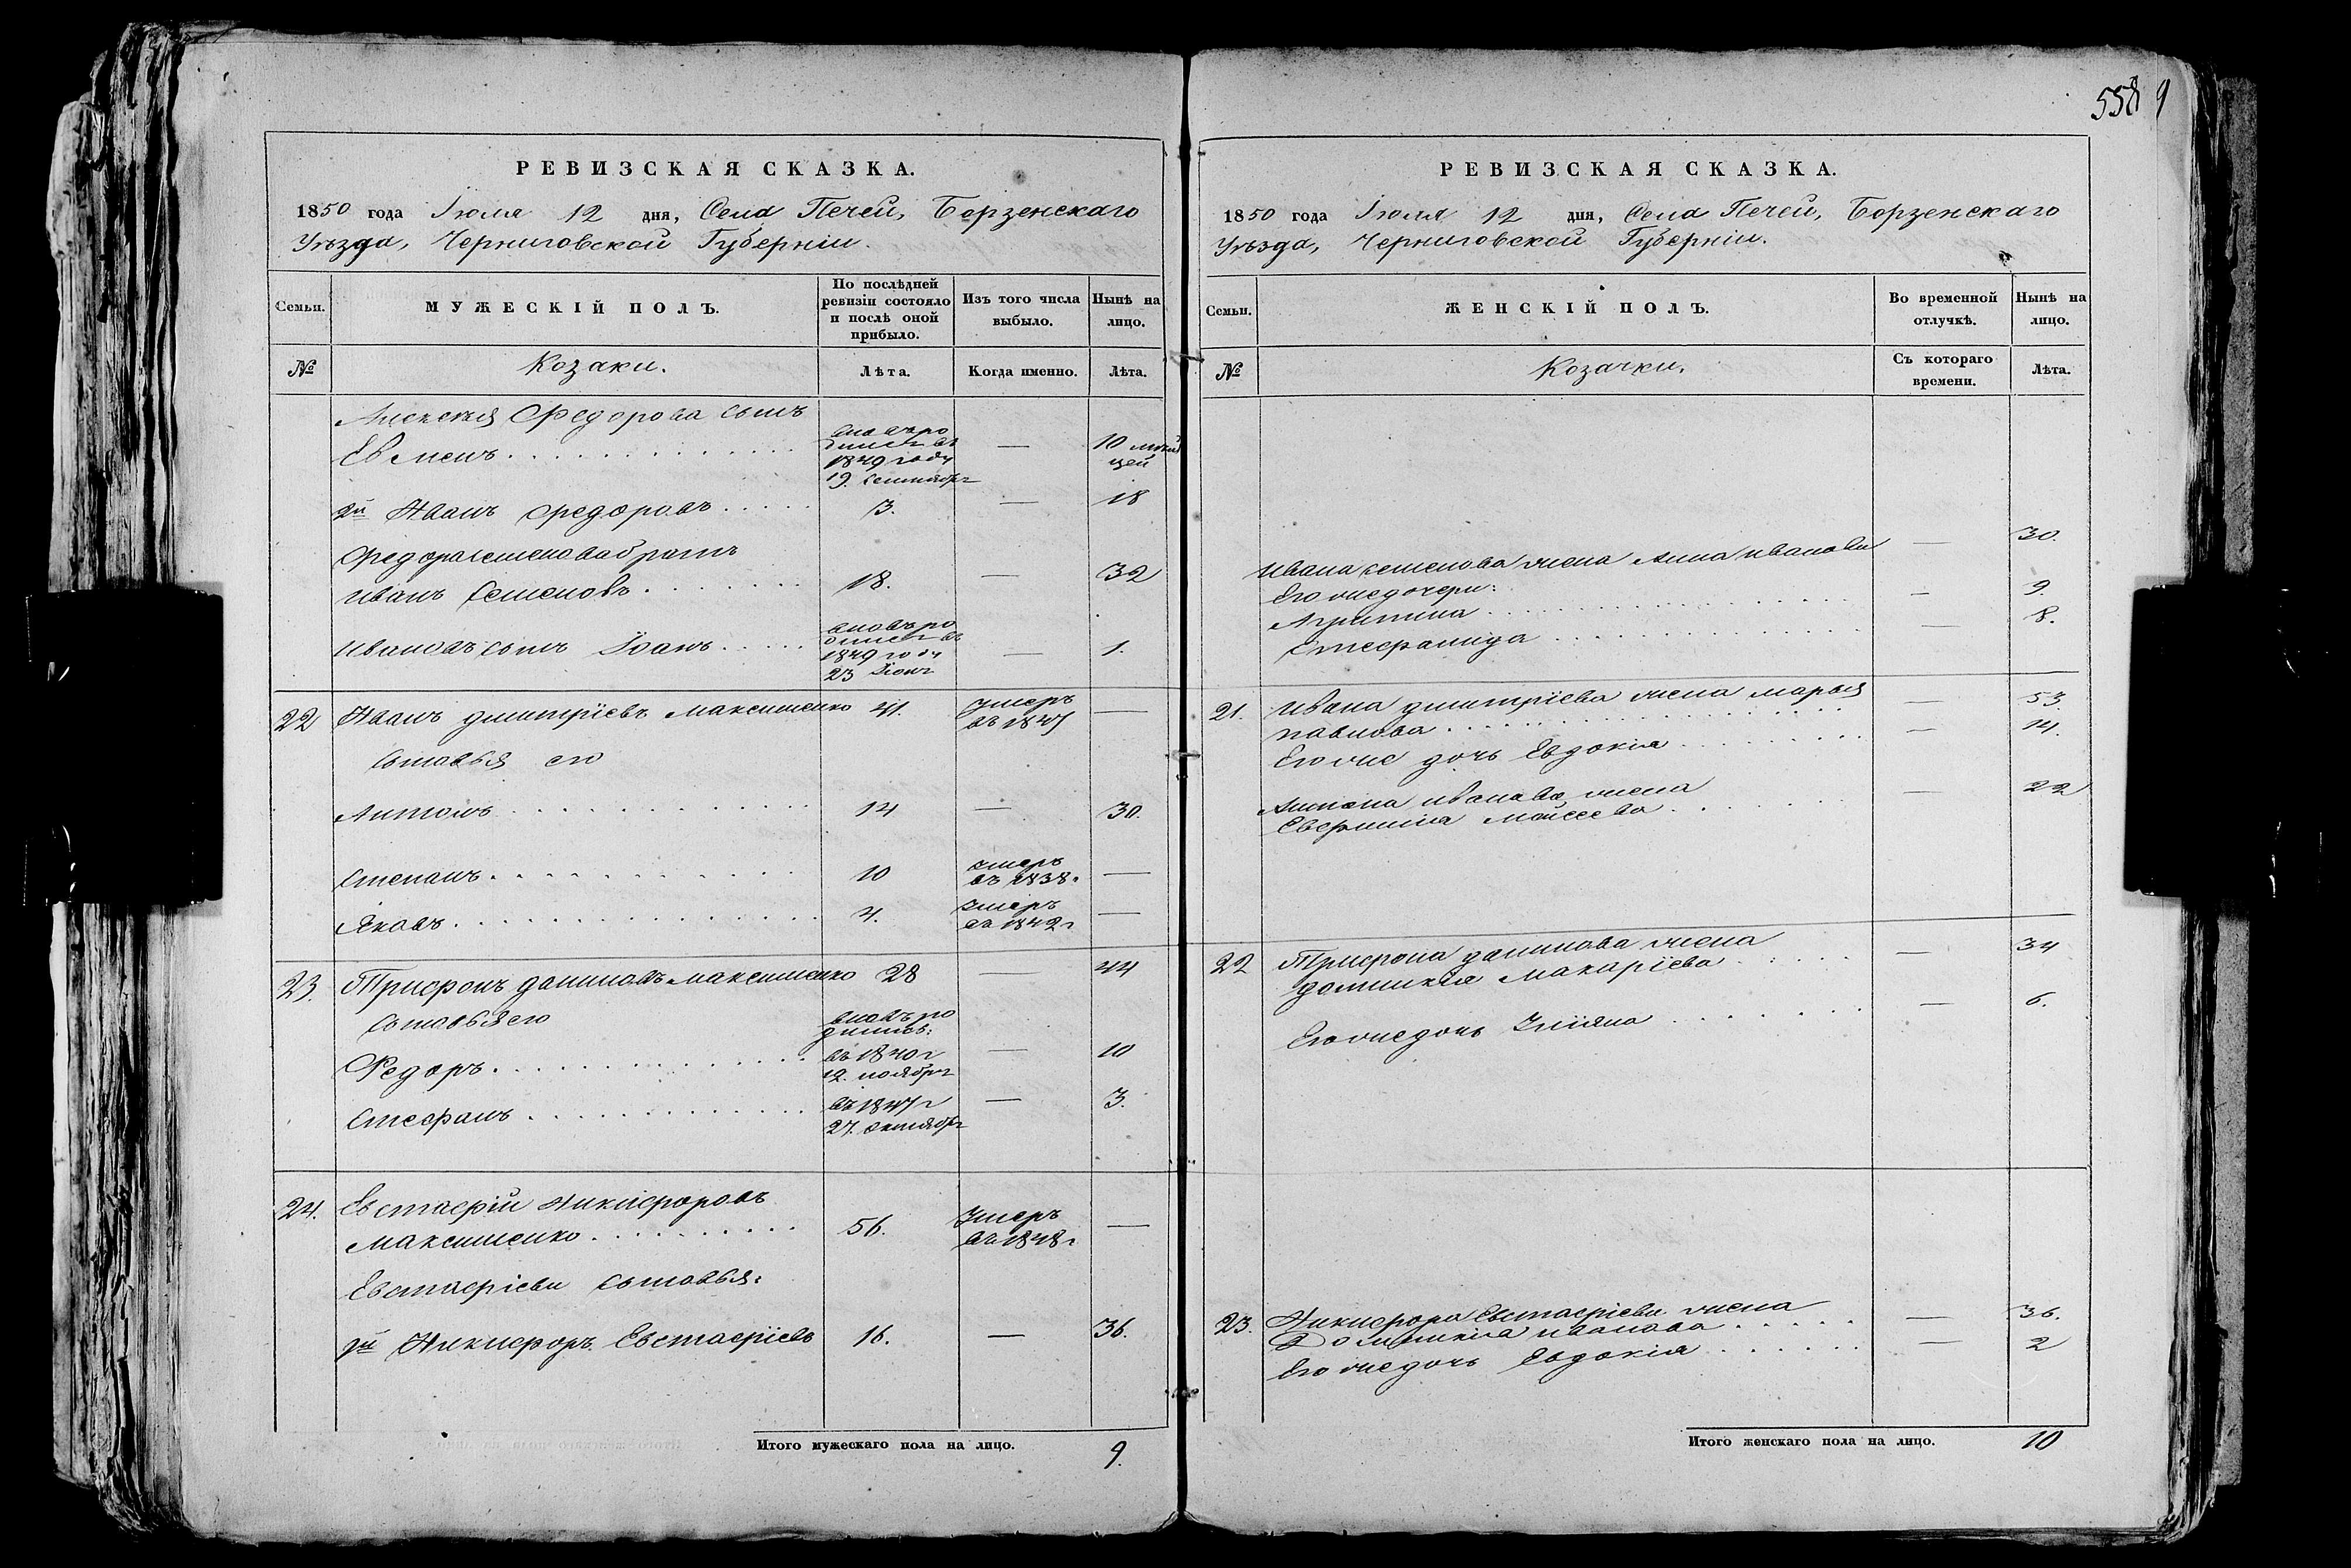 558 9
РЕВИЗСКАЯ СКАЗКА.
1850 года Іюля 12 дня, Села Печей, Борзенскаго
Уѣзда, Черниговской Губерніи.
Семьи.
МУЖЕСКІЙ ПОЛЪ.
По послѣдней
ревизіи состояло
и послѣ оной
прибыло.
Изъ того числа
выбыло.
Нынѣ на
лицо.
№
Козаки.
Лѣта.
Когда именно.
Лѣта.
Алексѣя Федорова сынъ
Евменъ . . . вновь ро
дился въ
1849 году
19. сентября — 10 мѣся
цей
2й Иванъ Федоровъ . . . 3. — 18
Федора Семенова братъ
Иванъ Семеновъ . . . 18. — 32
Ивановъ сынъ Іоанъ . . . вновь ро
дился въ
1849 году
23 Іюня — 1.
22 Иванъ Дмитріевъ Максименко 41. Умеръ
въ 1847 —
Сыновья его
Антонъ . . . 14 — 30.
Степанъ . . . 10 умеръ
въ 1838 г —
Яковъ . . . 4. Умеръ
въ 1842 г —
23. Трифонъ Даниловъ Максименко 28 44
Сыновья его вновь ро
дились:
Федоръ . . . въ 1840 г — 10
12. ноября
Стефанъ . . . въ 1847 г — 3.
27. октября
24. Евстафій Никифоровъ
Максименко . . . 56. Умеръ
въ 1848 г —
Евстафіевы сыновья:
1й Никифоръ Евстафіевъ 16. — 36.
Итого мужескаго пола на лицо. 9.
РЕВИЗСКАЯ СКАЗКА.
1850 года Іюля 12 дня, Села Печей, Борзенскаго
Уѣзда, Черниговской Губерніи.
Семьи.
ЖЕНСКІЙ ПОЛЪ.
Во временной
отлучкѣ.
Нынѣ на
лицо.
№
Козачки.
Съ котораго
времени.
Лѣта.
Ивана Семенова жена Анна Иванова — 30.
Его же дочери:
Агрипина . . . — 9.
Стефанида . . . — 8.
21. Ивана Дмитріева жена Марья
Павлова . . . — 53
Его же дочь Евдокія . . . — 14.
Антона Иванова жена
Евфимія Моисеева . . . — 22
22 Трифона Данилова жена
Домникія Макаріева . . . — 34
Его же дочь Уліяна . . . — 6.
23. Никифора Евстафіева жена
Домникія Иванова . . . — 36.
Его же дочь Евдокія . . . — 2
Итого женскаго пола на лицо. 10